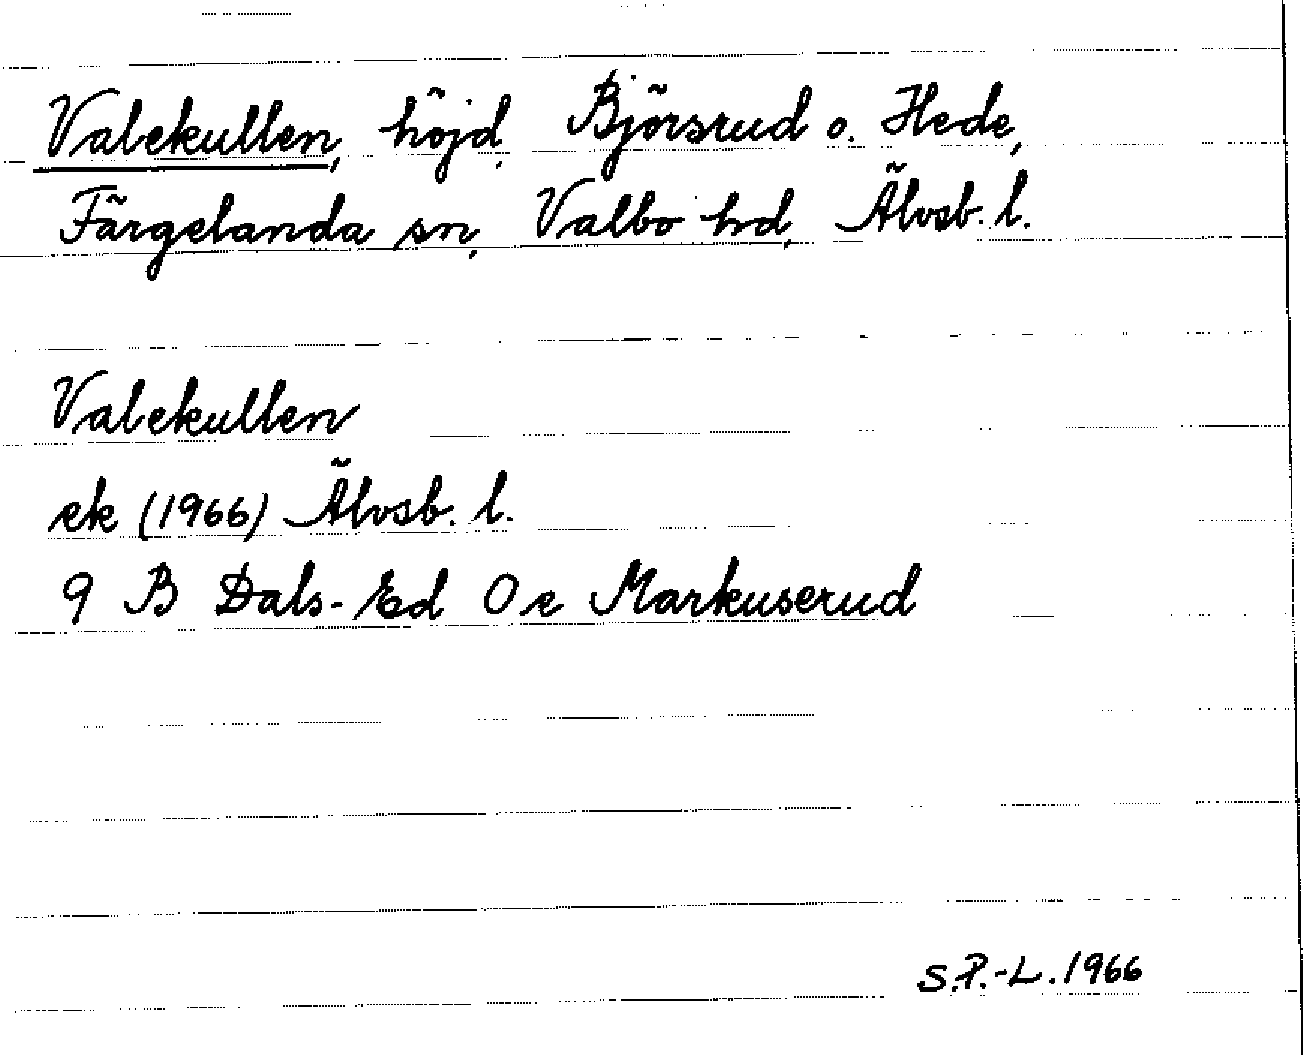 Valekullen, höjd, Björsrud o. Hede,
Färgelanda sn, Valbo hd, Älvsb. l.
Valekullen
ek (1966) Älvsb. l.
9 B Dals-Ed 0 e Markuserud
S.P.-L. 1966